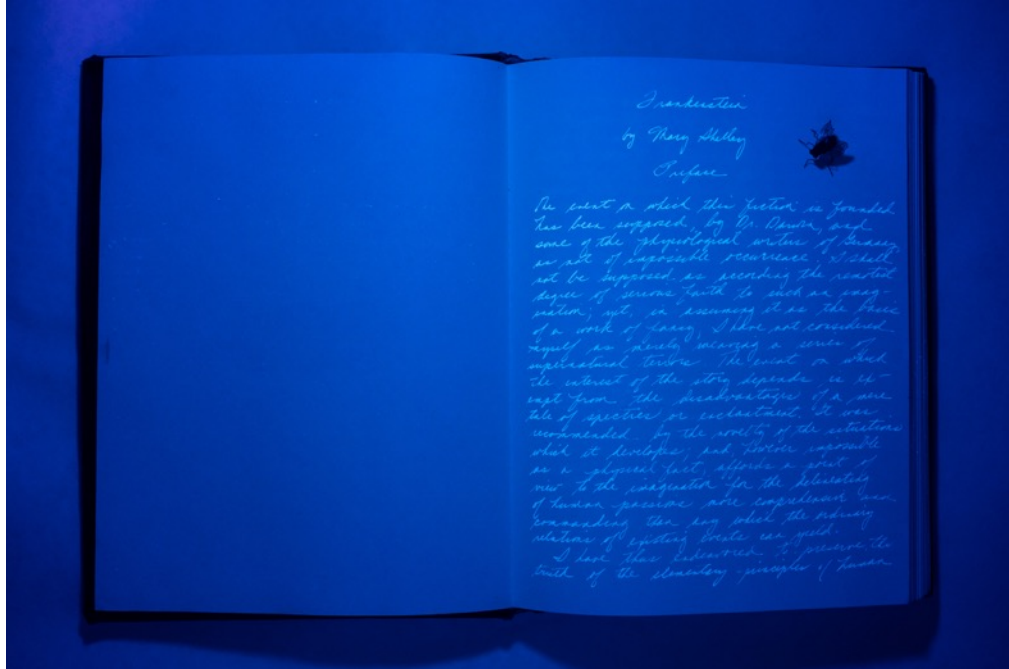 Frankenstein
by Mary Shelley
Preface
The event on which this fiction is founded
has been supposed, by Dr. Darwin, and
some of the physiological writers of Germany,
as not of impossible occurrence. I shall
not be supposed as according the remotest
degree of serious faith to such an imag-
ination; yet, in assuming it as the basis
of a work of fancy, I have not considered
myself as merely weaving a series of
supernatural terrors. The event on which
the interest of the story depends is ex-
empt from the disadvantages of a mere
tale of spectres or enchantment. It was
recommended by the novelty of the situations
which it developes; and however impossible
as a physical fact, affords a point of
view to the imagination for the delineating
of human passions more comprehensive and
commanding than any which the ordinary
relations of existing events can yield.
I have thus endeavored to preserve the
truth of the elementary principles of human